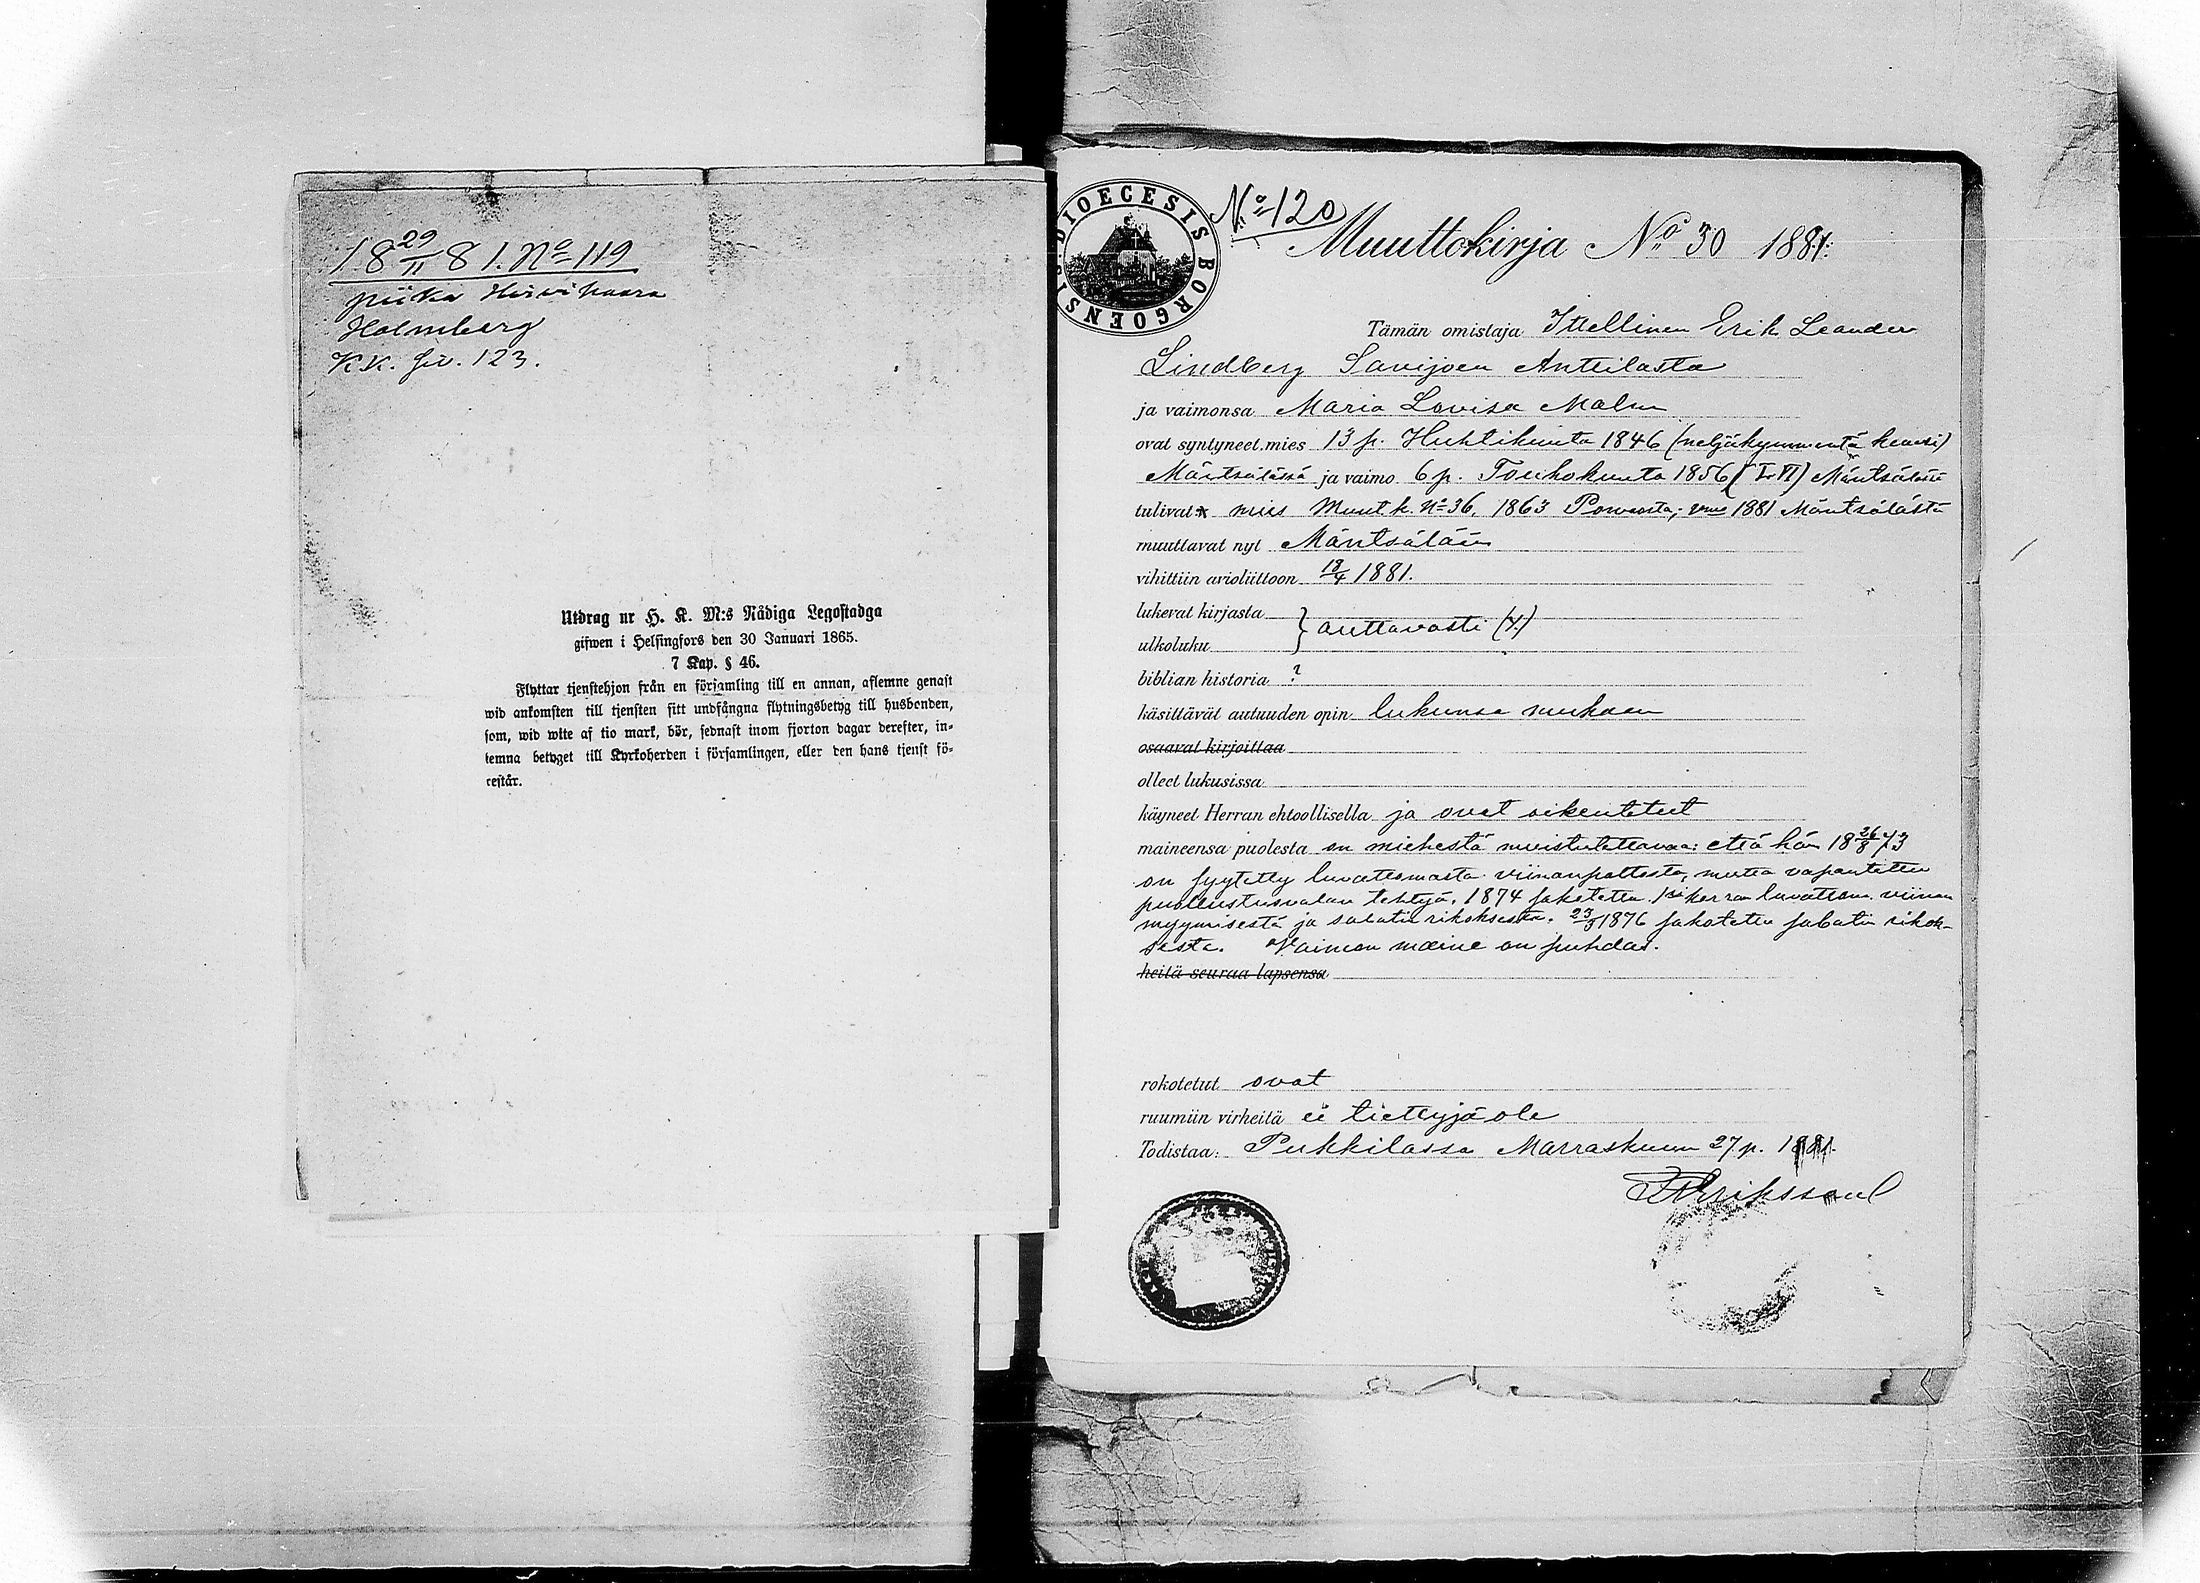 18 29/11 81. No 119
piika Hirvihaara
Holmberg
K.K. siv. 123.
Utdrag ur H. K. M:s Nådiga Legostadga
gifwen i Helsingfors den 30 Januari 1865.
7 Kap. § 46.
Flyttar tjenstehjon från en församling till en annan, aflemne genast
wid ankomsten till tjensten sitt undfångna flytningsbetyg till husbonden,
som, wid wite af tio mark, bör, sednast inom fjorton dagar derefter, in-
lemna betyget till Kyrkoherden i församlingen, eller den hans tjenst fö-
restår.
DIOECESIS BORGOENSIS
No 120
Muuttokirja No 30 1881.
Tämän omistaja Itsellinen Erik Leander
Lindberg Savijoen Anttilasta
ja vaimonsa Maria Lovisa Malm
ovat syntyneet, mies 13 p. Huhtikuuta 1846 (neljäkymmentä kuusi)
Mäntsälässä ja vaimo 6 p. Toukokuuta 1856 (LVI) Mäntsälässä
tulivat mies Muutk. No 36, 1863 Porvoosta, vmo 1881 Mäntsälästä
muuttavat nyt Mäntsälään
vihittiin avioliittoon 18/4 1881.
lukevat kirjasta
ulkoluku } auttavasti (x.)
biblian historia ?
käsittävät autuuden opin lukunsa mukaan
osaavat kirjoittaa
olleet lukusissa
käyneet Herran ehtoollisella ja ovat oikeutetut
maineensa puolesta on miehestä muistutettavaa: että hän 18 26/8 73
on syytetty luvattomasta viinanpoltosta, mutta vapautettu
puollustusvalan tehtyä. 1874 sakotettu 1si kerran luvattom. viinan
myymisestä ja sabatin rikoksesta. 23/3 1876 sakotettu sabatin rikok-
sesta. Vaimon maine on puhdas.
heitä seuraa lapsensa
rokotetut ovat
ruumiin virheitä ei tiettyjä ole
Todistaa: Pukkilassa Marraskuun 27 p. 1881.
Erikssonl